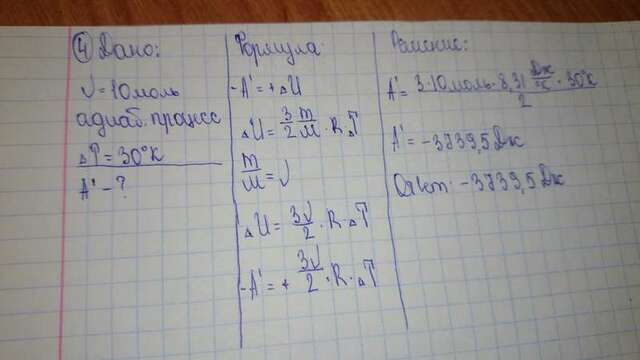 ④ Дано:
ν = 10 моль
адиаб. процесс
ΔT = 30°K
A' - ?
Формула
-A' = +ΔU
ΔU = 3/2 m/M · R · ΔT
m/M = ν
ΔU = 3ν/2 · R · ΔT
-A' = + 3ν/2 · R · ΔT
Решение:
A' = 3·10 моль · 8,31 Дж/°K · 30°K / 2
A' = -3739,5 Дж
Ответ: -3739,5 Дж